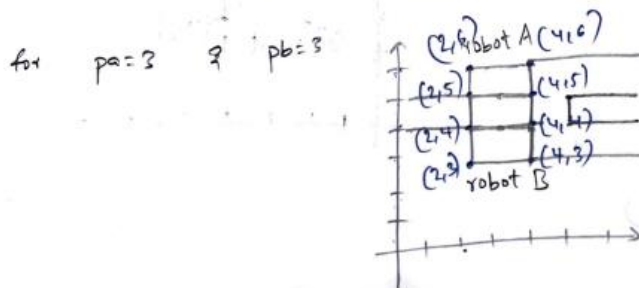 for pa=3 & pb=3
(2,6) robot A (4,6)
(2,5) (4,5)
(2,4) (4,4)
(2,3) (4,3)
robot B